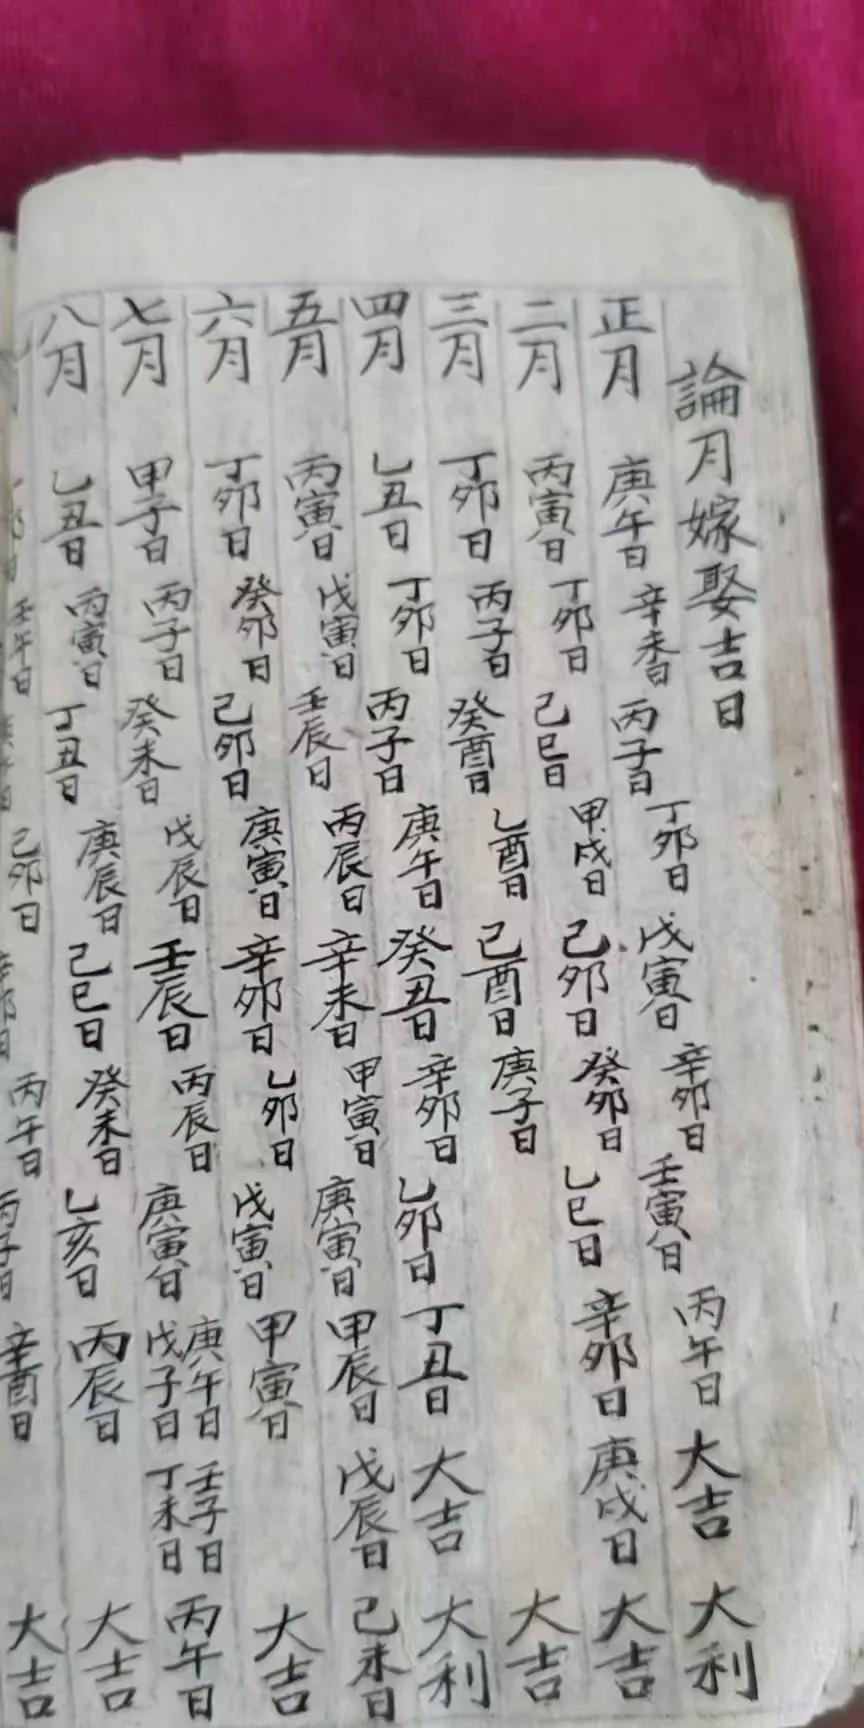 論月嫁娶吉日
正月 庚午日 辛未日 丙子日 丁卯日 戊寅日 辛卯日 壬寅日 丙午日 大吉 大利
二月 丙寅日 丁卯日 己巳日 甲戌日 己卯日 癸卯日 乙巳日 辛卯日 庚戌日 大吉
三月 丁卯日 丙子日 癸酉日 乙酉日 己酉日 庚子日 大吉
四月 乙丑日 丁卯日 丙子日 庚午日 癸丑日 辛卯日 乙卯日 丁丑日 大吉 大利
五月 丙寅日 戊寅日 壬辰日 丙辰日 辛未日 甲寅日 庚寅日 甲辰日 戊辰日 己未日
六月 丁卯日 癸卯日 己卯日 庚寅日 辛卯日 乙卯日 戊寅日 甲寅日 大吉
七月 甲子日 丙子日 癸未日 戊辰日 壬辰日 丙辰日 庚寅日 庚午日 戊子日 壬子日 丁未日 丙午日
八月 乙丑日 丙寅日 丁丑日 庚辰日 己巳日 癸未日 乙亥日 丙辰日 大吉
壬午日 己卯日 辛卯日 丙午日 丙子日 辛酉日 大吉